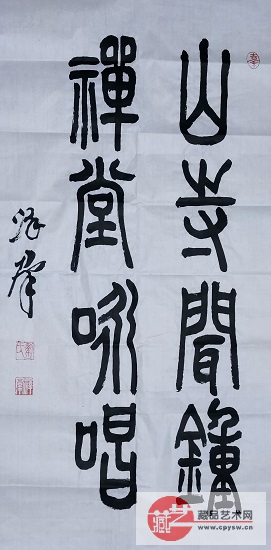 山寺聞鐘
禪堂咏唱
藏艺
藏品艺术网
www.cpysw.cn